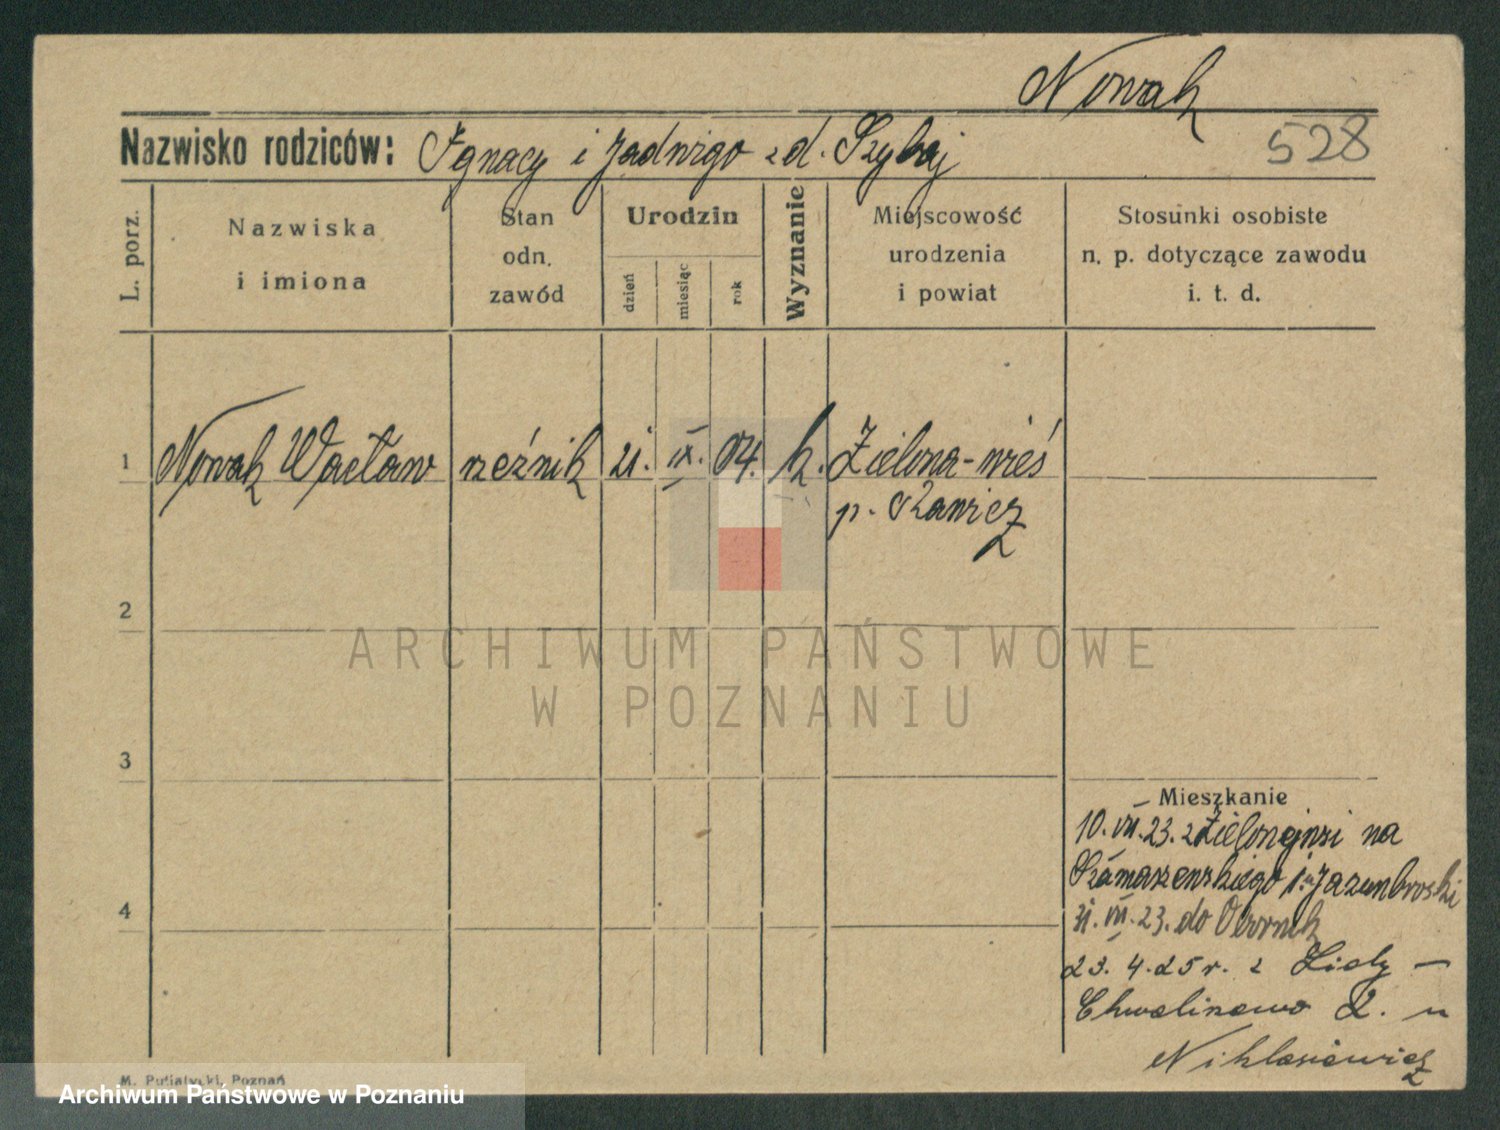 Nowak
Nazwisko rodziców: Ignacy i Jadwiga z d. Szybaj
528
L. porz.
Nazwiska
i imiona
Stan
odn.
zawód
Urodzin
dzień
miesiąc
rok
Wyznanie
Miejscowość
urodzenia
i powiat
Stosunki osobiste
n. p. dotyczące zawodu
i. t. d.
1 Nowak Wacław rzeźnik 21. IX. 04. k. Zielona-wieś
p. Rawicz
2
ARCHIWUM PAŃSTWOWE
W POZNANIU
3
4
Mieszkanie
10. VII. 23. z Zielonejwsi na
31. VII. 23. do Obornik
23. 4. 25 r. z
2. u
Niklasiewicz
M. Putiatycki, Poznań
Archiwum Państwowe w Poznaniu